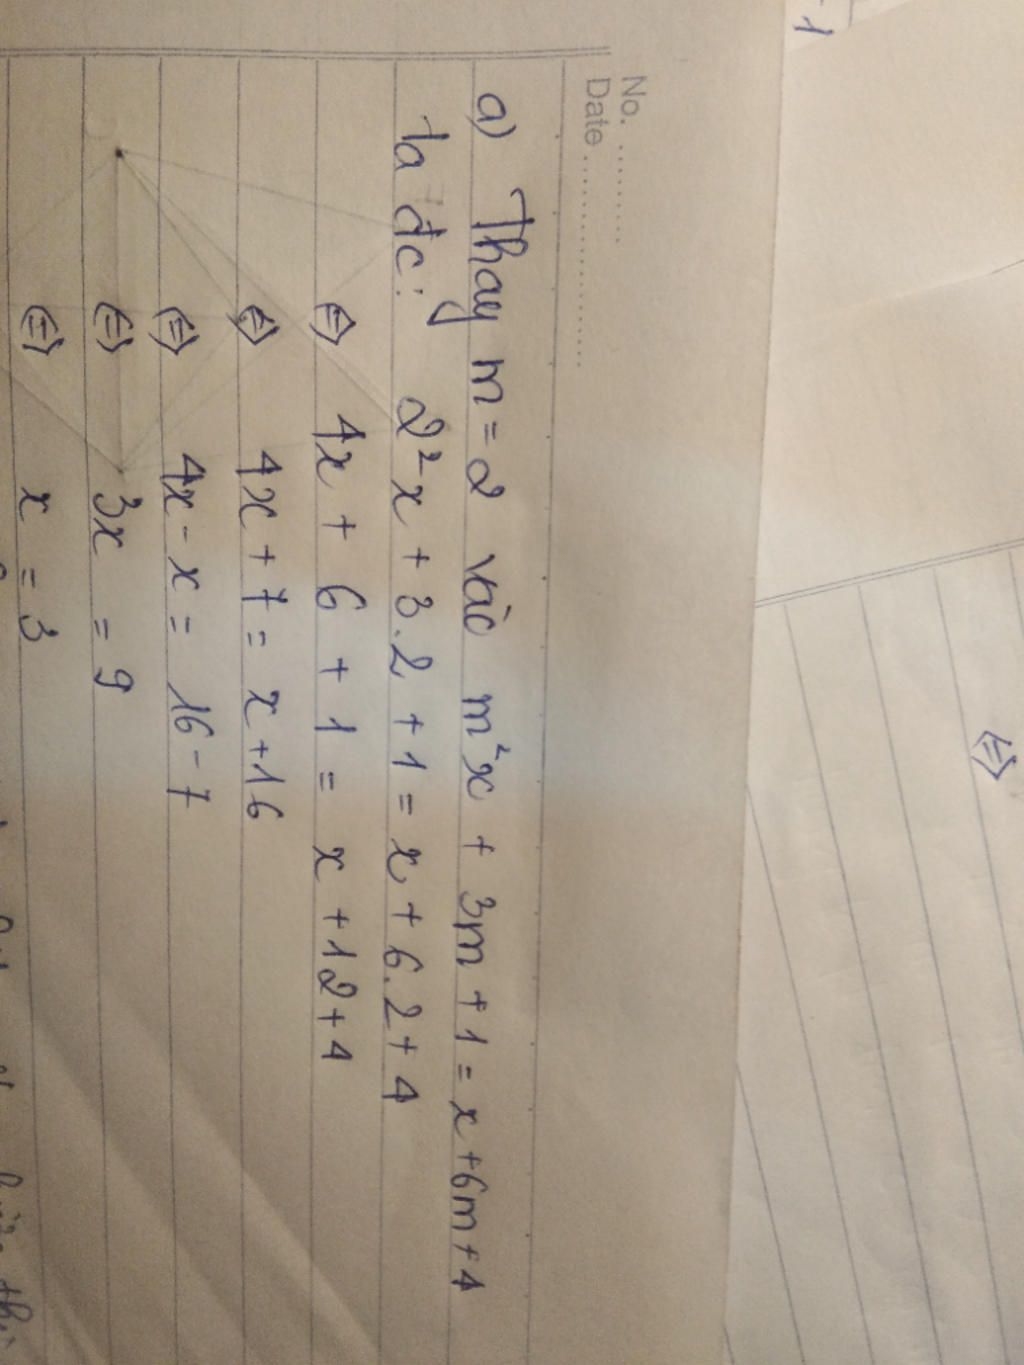 No. ..........
Date ......................
a) Thay m = 2 vào m²x + 3m + 1 = x + 6m + 4
ta đc: 2²x + 3.2 + 1 = x + 6.2 + 4
⇔ 4x + 6 + 1 = x + 12 + 4
⇔ 4x + 7 = x + 16
⇔ 4x - x = 16 - 7
⇔ 3x = 9
⇔ x = 3
1
⇔